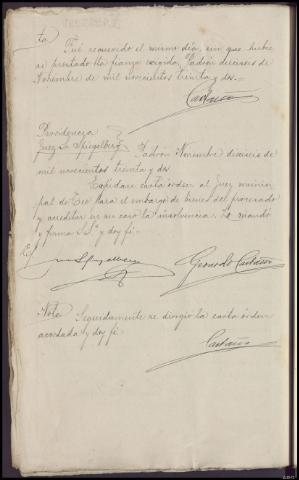 Fué requerido el mismo día, sin que hubie
se prestado la fianza exigida, Padrón dieciseis de
Noviembre de mil novecientos treinta y dos.=
Castaño
Providencia
Juez Sr Spiegelberg Padrón Noviembre dieciseis de
mil novecientos treinta y dos.
Expídase carta órden al Juez munici-
pal de Teo para el embargo de bienes del procesado
y acreditar en su caso la insolvencia. Lo mandó
y firma S.Sª y doy fé.
Spiegelberg Gerardo Castaño
Nota Seguidamente se dirigió la carta órden
acordada y doy fé.
Castaño